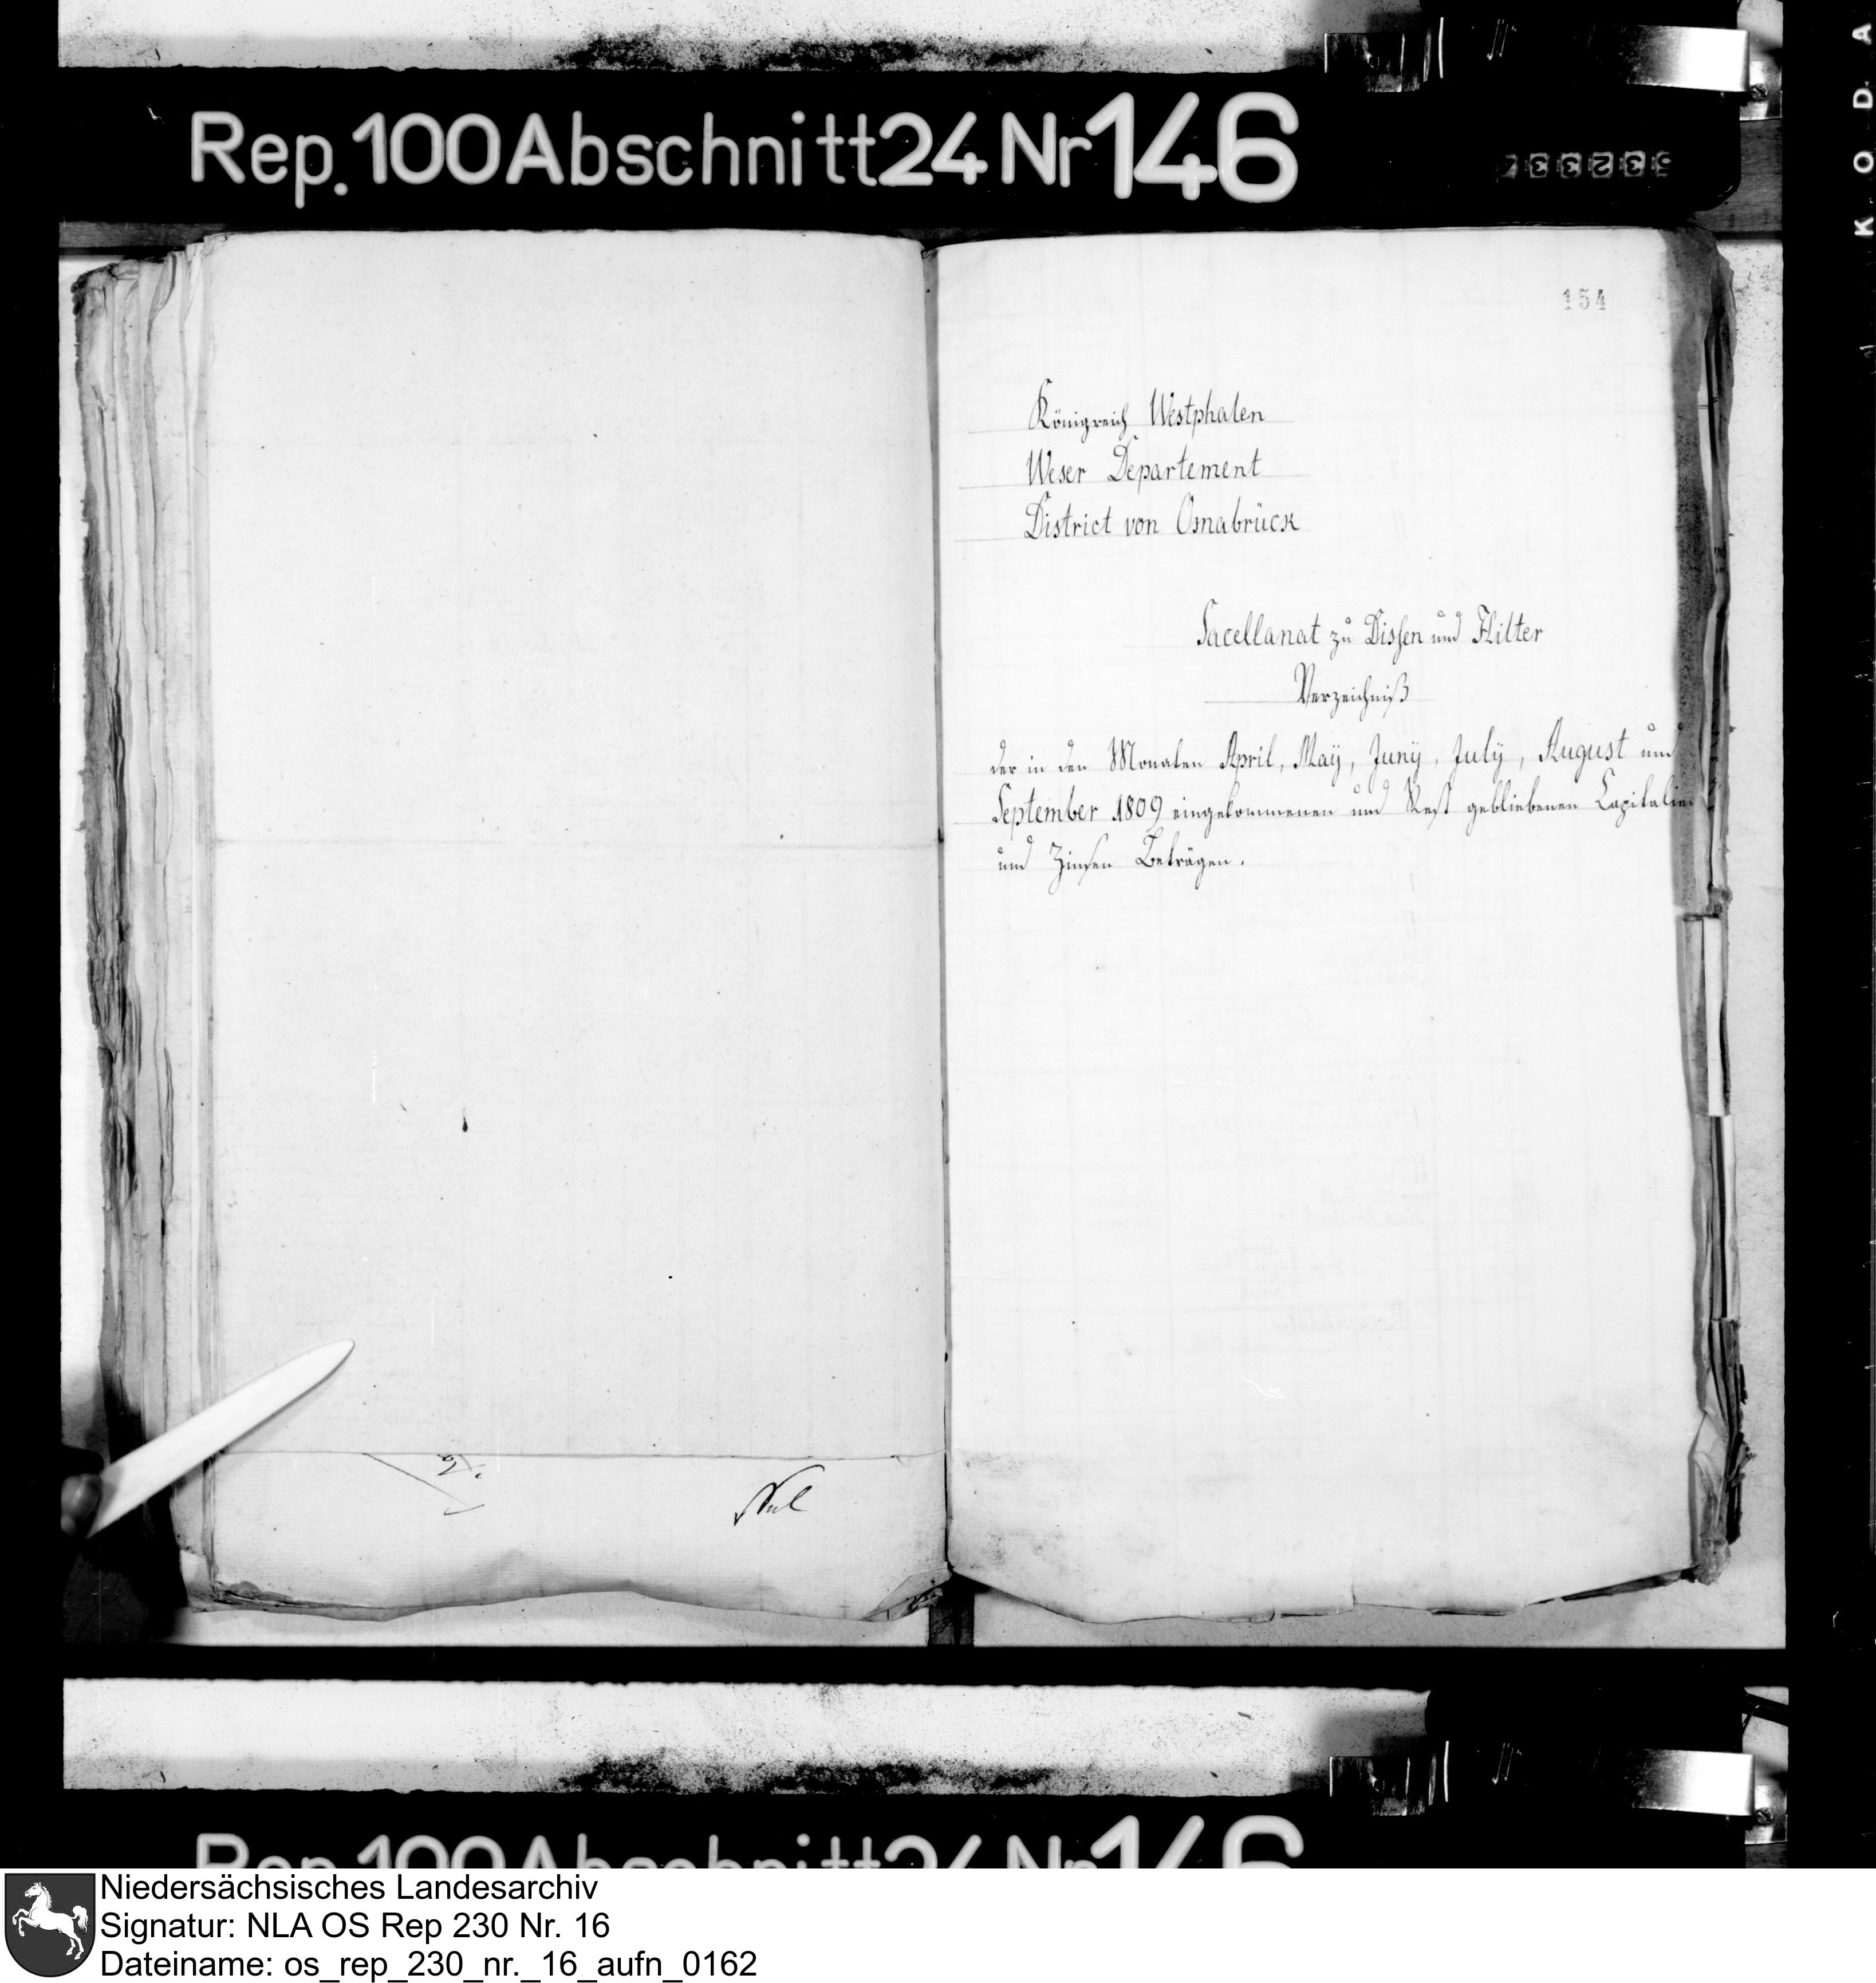 Rep. 100 Abschnitt 24 Nr 146
154
Königreich Westphalen
Weser Departement
District von Osnabrück
Sacellanat zu Dissen und Hilter
Verzeichniß
der in den Monaten April, Maÿ, Junÿ, Julÿ, August und
September 1809 eingekommenen und Rest gebliebenen Capitalien
und Zinsen Beträgen.
KODA
Rep. 100 Abschnitt 24 Nr 146
Niedersächsisches Landesarchiv
Signatur: NLA OS Rep 230 Nr. 16
Dateiname: os_rep_230_nr._16_aufn_0162